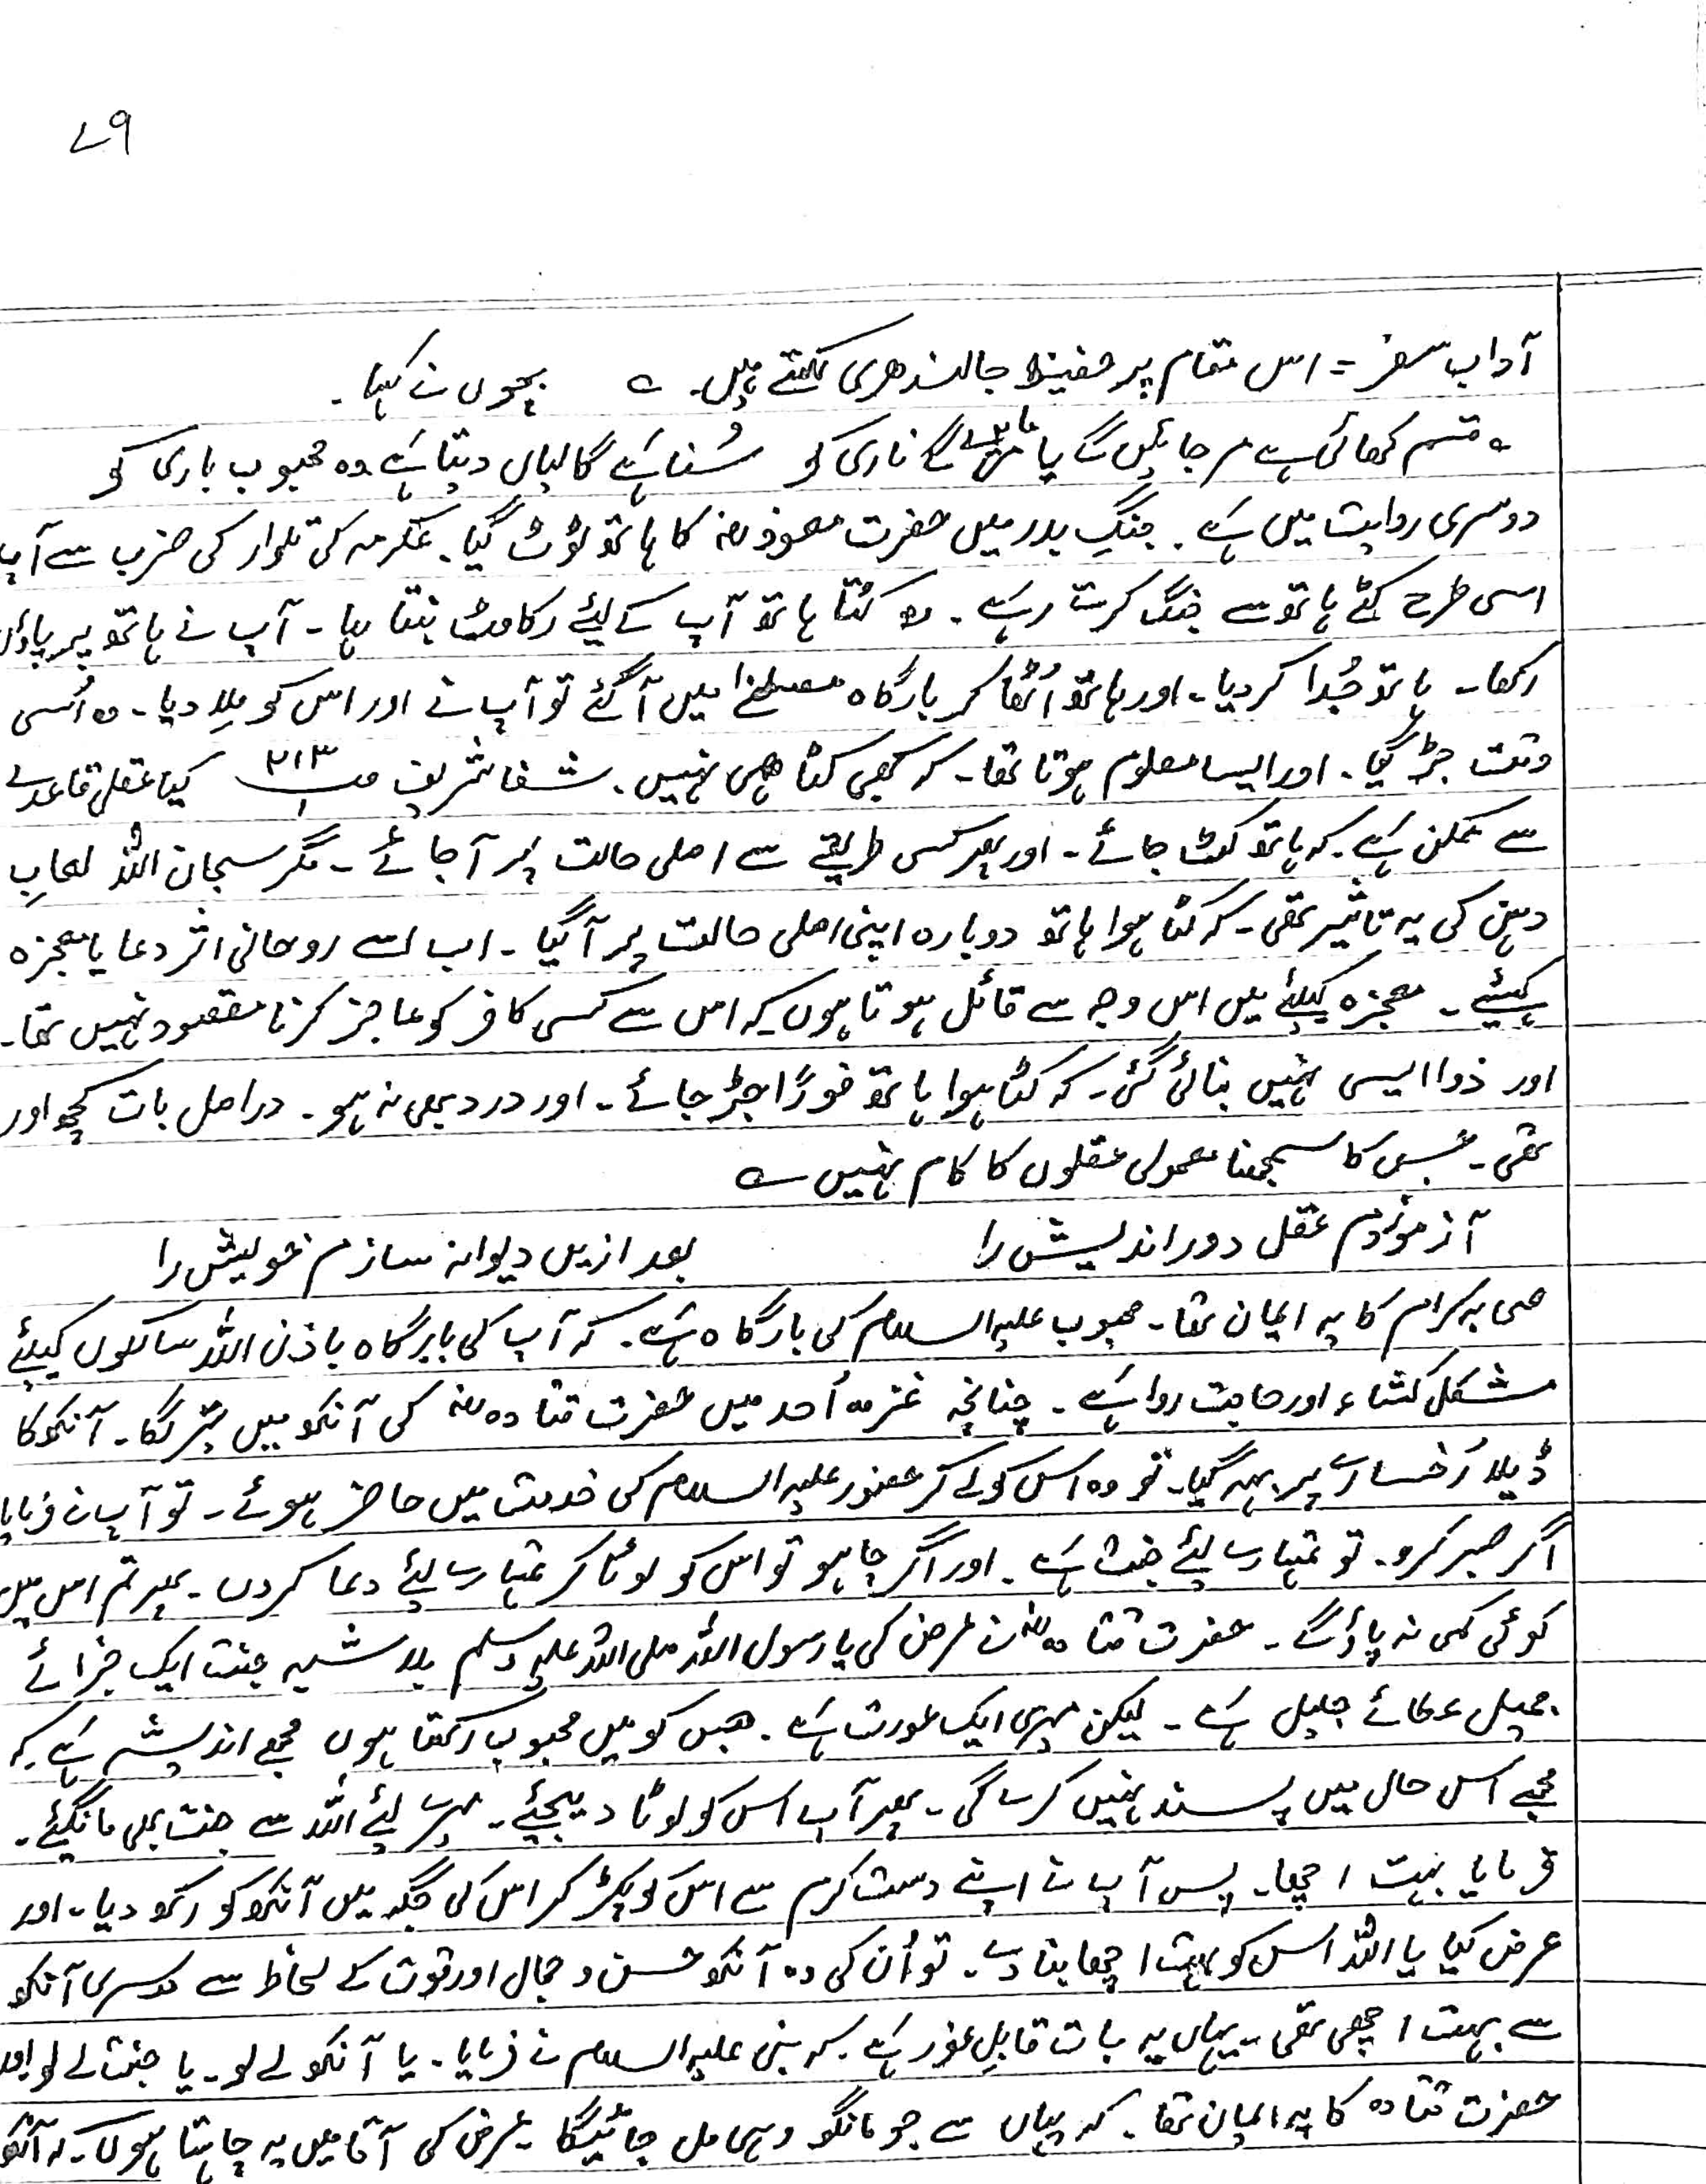 ۷۹
آداب سفر = اس مقام پر حفیظ جالندھری لکھتے ہیں۔ ؎ بچوں نے کہا۔
؎ قسم کھائی ہے مر جائیں گے یا ماریں گے ناری کو سُنا ہے گالیاں دیتا ہے وہ محبوب باری کو
دوسری روایت میں ہے۔ جنگِ بدر میں حضرت معوذ رضہ کا ہاتھ ٹوٹ گیا۔ عکرمہ کی تلوار کی ضرب سے آپ
اسی طرح کٹے ہاتھ سے جنگ کرتے رہے۔ وہ کٹا ہاتھ آپ کے لیئے رکاوٹ بنتا رہا۔ آپ نے ہاتھ پر پاؤں
رکھا۔ ہاتھ جُدا کر دیا۔ اور ہاتھ اُٹھا کر بارگاہ مصطفےٰ میں آ گئے تو آپ نے اور اس کو مِلا دیا۔ وہ اُسی
وقت جڑ گیا۔ اور ایسا معلوم ہوتا تھا۔ کہ کبھی کٹا ھی نہیں۔ شفا شریف ص ۲۱۳ کیا عقلی قاعدے
سے ممکن ہے۔ کہ ہاتھ کٹ جائے۔ اور پھر کسی طریقے سے اصلی حالت پر آ جائے۔ مگر سبحان اللہ لعابِ
دہن کی یہ تاثیر تھی۔ کہ کٹا ہوا ہاتھ دوبارہ اپنی اصلی حالت پر آ گیا۔ اب اسے روحانی اثر دعا یا معجزہ
کہیئے۔ معجزہ کیلئے میں اس وجہ سے قائل ہوتا ہوں کہ اس سے کسی کافر کو عاجز کرنا مقصود نہیں تھا۔
اور دوا ایسی نہیں بنائی گئی۔ کہ کٹا ہوا ہاتھ فوراً جڑ جائے۔ اور درد بھی نہ ہو۔ دراصل بات کچھ اور
تھی۔ جس کا سمجھنا معمولی عقلوں کا کام نہیں ؎
آزمودم عقل دور اندیش را بعد ازیں دیوانہ سازم خویش را
صحابہ کرام کا یہ ایمان تھا۔ محبوب علیہ السلام کی بارگاہ ہے۔ کہ آپ کی بارگاہ باذن اللہ سائلوں کیلئے
مشکل کشاء اور حاجت روا ہے۔ چنانچہ غزوہ اُحد میں حضرت قتادہ رضہ کی آنکھ میں تیر لگا۔ آنکھ کا
ڈیلا رُخسارے پر بہہ گیا۔ تو وہ اس کو لے کر حضور علیہ السلام کی خدمت میں حاضر ہوئے۔ تو آپ نے فرمایا
اگر صبر کرو۔ تو تمہارے لیئے جنت ہے۔ اور اگر چاہو تو اس کو لوٹا کر تمہارے لیئے دعا کر دوں۔ پھر تم اس میں
کوئی کمی نہ پاؤ گے۔ حضرت قتادہ رضہ نے عرض کی یا رسول اللہ صلی اللہ علیہ وسلم بلا شبہ جنت ایک جزائے
جمیل عطائے جلیل ہے۔ لیکن میری ایک عورت ہے۔ جس کو میں محبوب رکھتا ہوں مجھے اندیشہ ہے کہ
مجھے اس حال میں پسند نہیں کرے گی۔ پھر آپ اس کو لوٹا دیجئے۔ میرے لیئے اللہ سے جنت بھی مانگیئے۔
فرمایا بہت اچھا۔ پس آپ نے اپنے دست کرم سے اس کو پکڑ کر اس کی جگہ میں آنکھ کو رکھ دیا۔ اور
عرض کیا یا اللہ اس کو بہت اچھا بنا دے۔ تو اُن کی وہ آنکھ حسن و جمال اور قوت کے لحاظ سے دوسری آنکھ
سے بہت اچھی تھی۔ یہاں یہ بات قابلِ غور ہے۔ کہ نبی علیہ السلام نے فرمایا۔ یا آنکھ لے لو۔ یا جنت لے لو اور
حضرت قتادہ کا یہ ایمان تھا۔ کہ یہاں سے جو مانگو وہی مل جائیگا۔ عرض کی آقا میں یہ چاہتا ہوں۔ کہ آنکھ